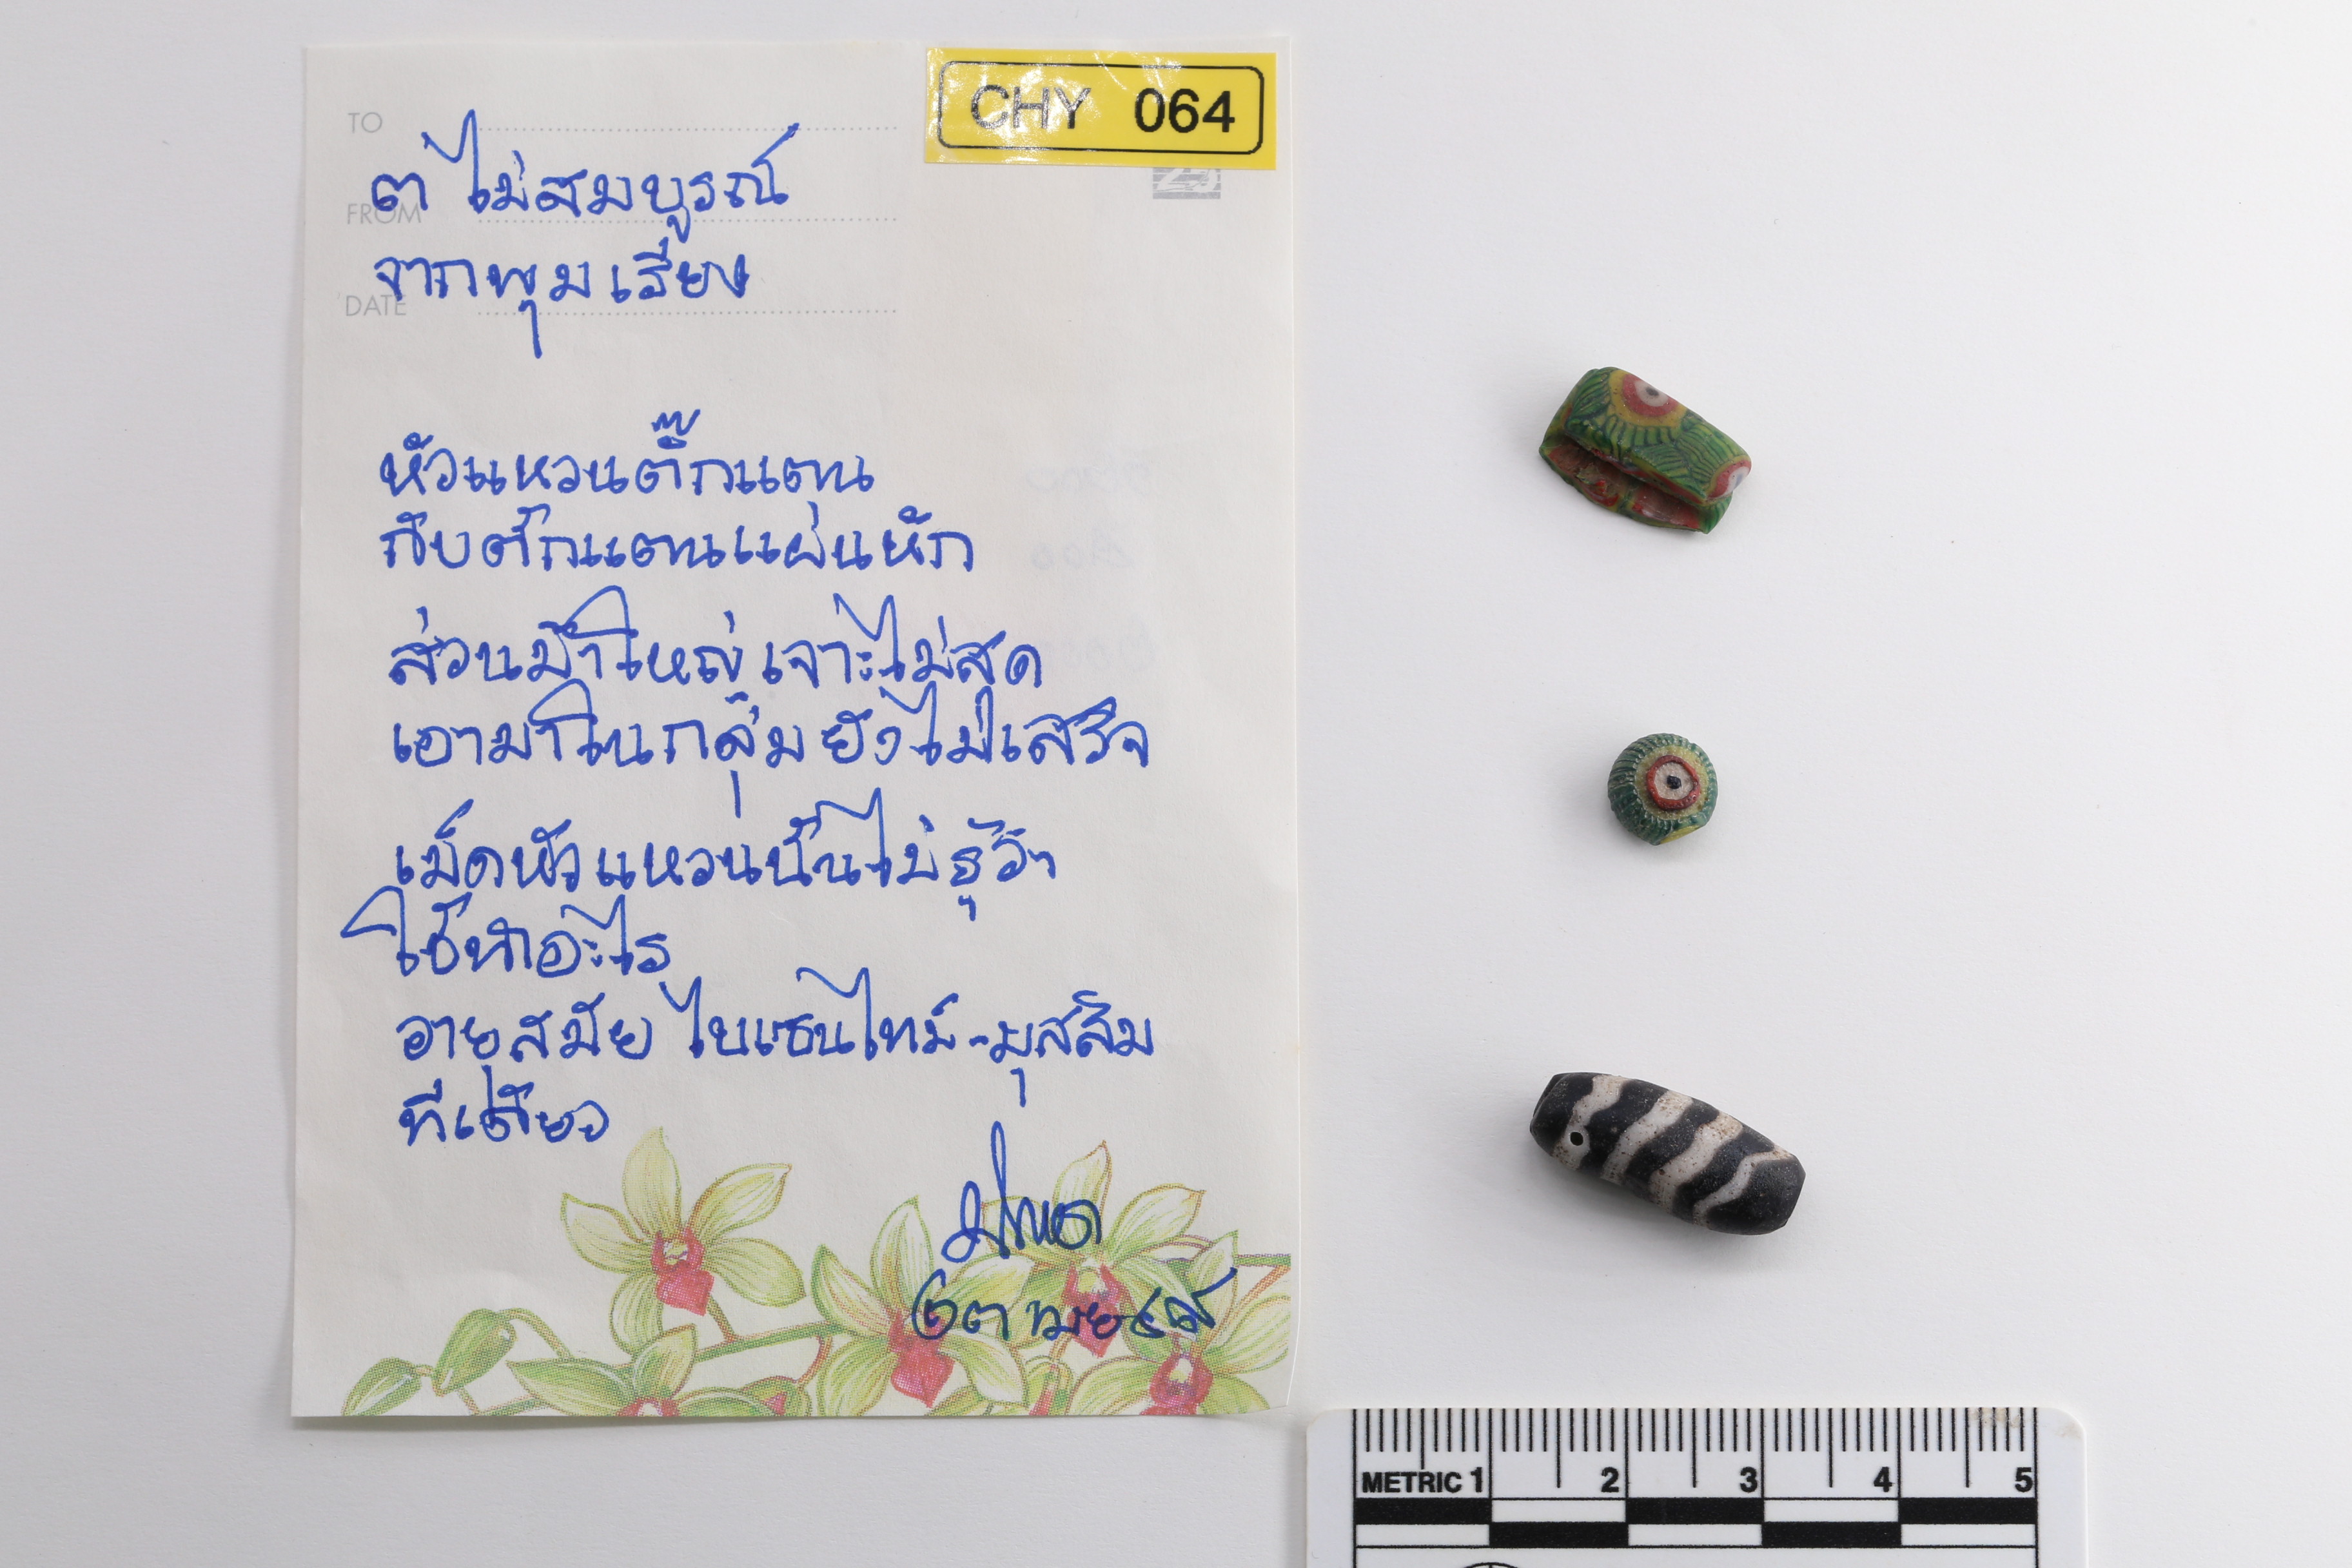 CHY 064
TO
ต ไม่สมบูรณ์
FROM
จากพุมเรียง
DATE
หัวแหวนตั๊กแตน
กับตั๊กแตนแผ่นหัก
ส่วนม้าใหญ่เจาะไม่สุด
เอามาในกลุ่มยังไม่เสร็จ
เม็ดหัวแหวนนั้นไม่รู้ว่า
ใช้ทำอะไร
อายุสมัย ไบแซนไทม์-มุสลิม
ทีเดียว
METRIC 1 2 3 4 5